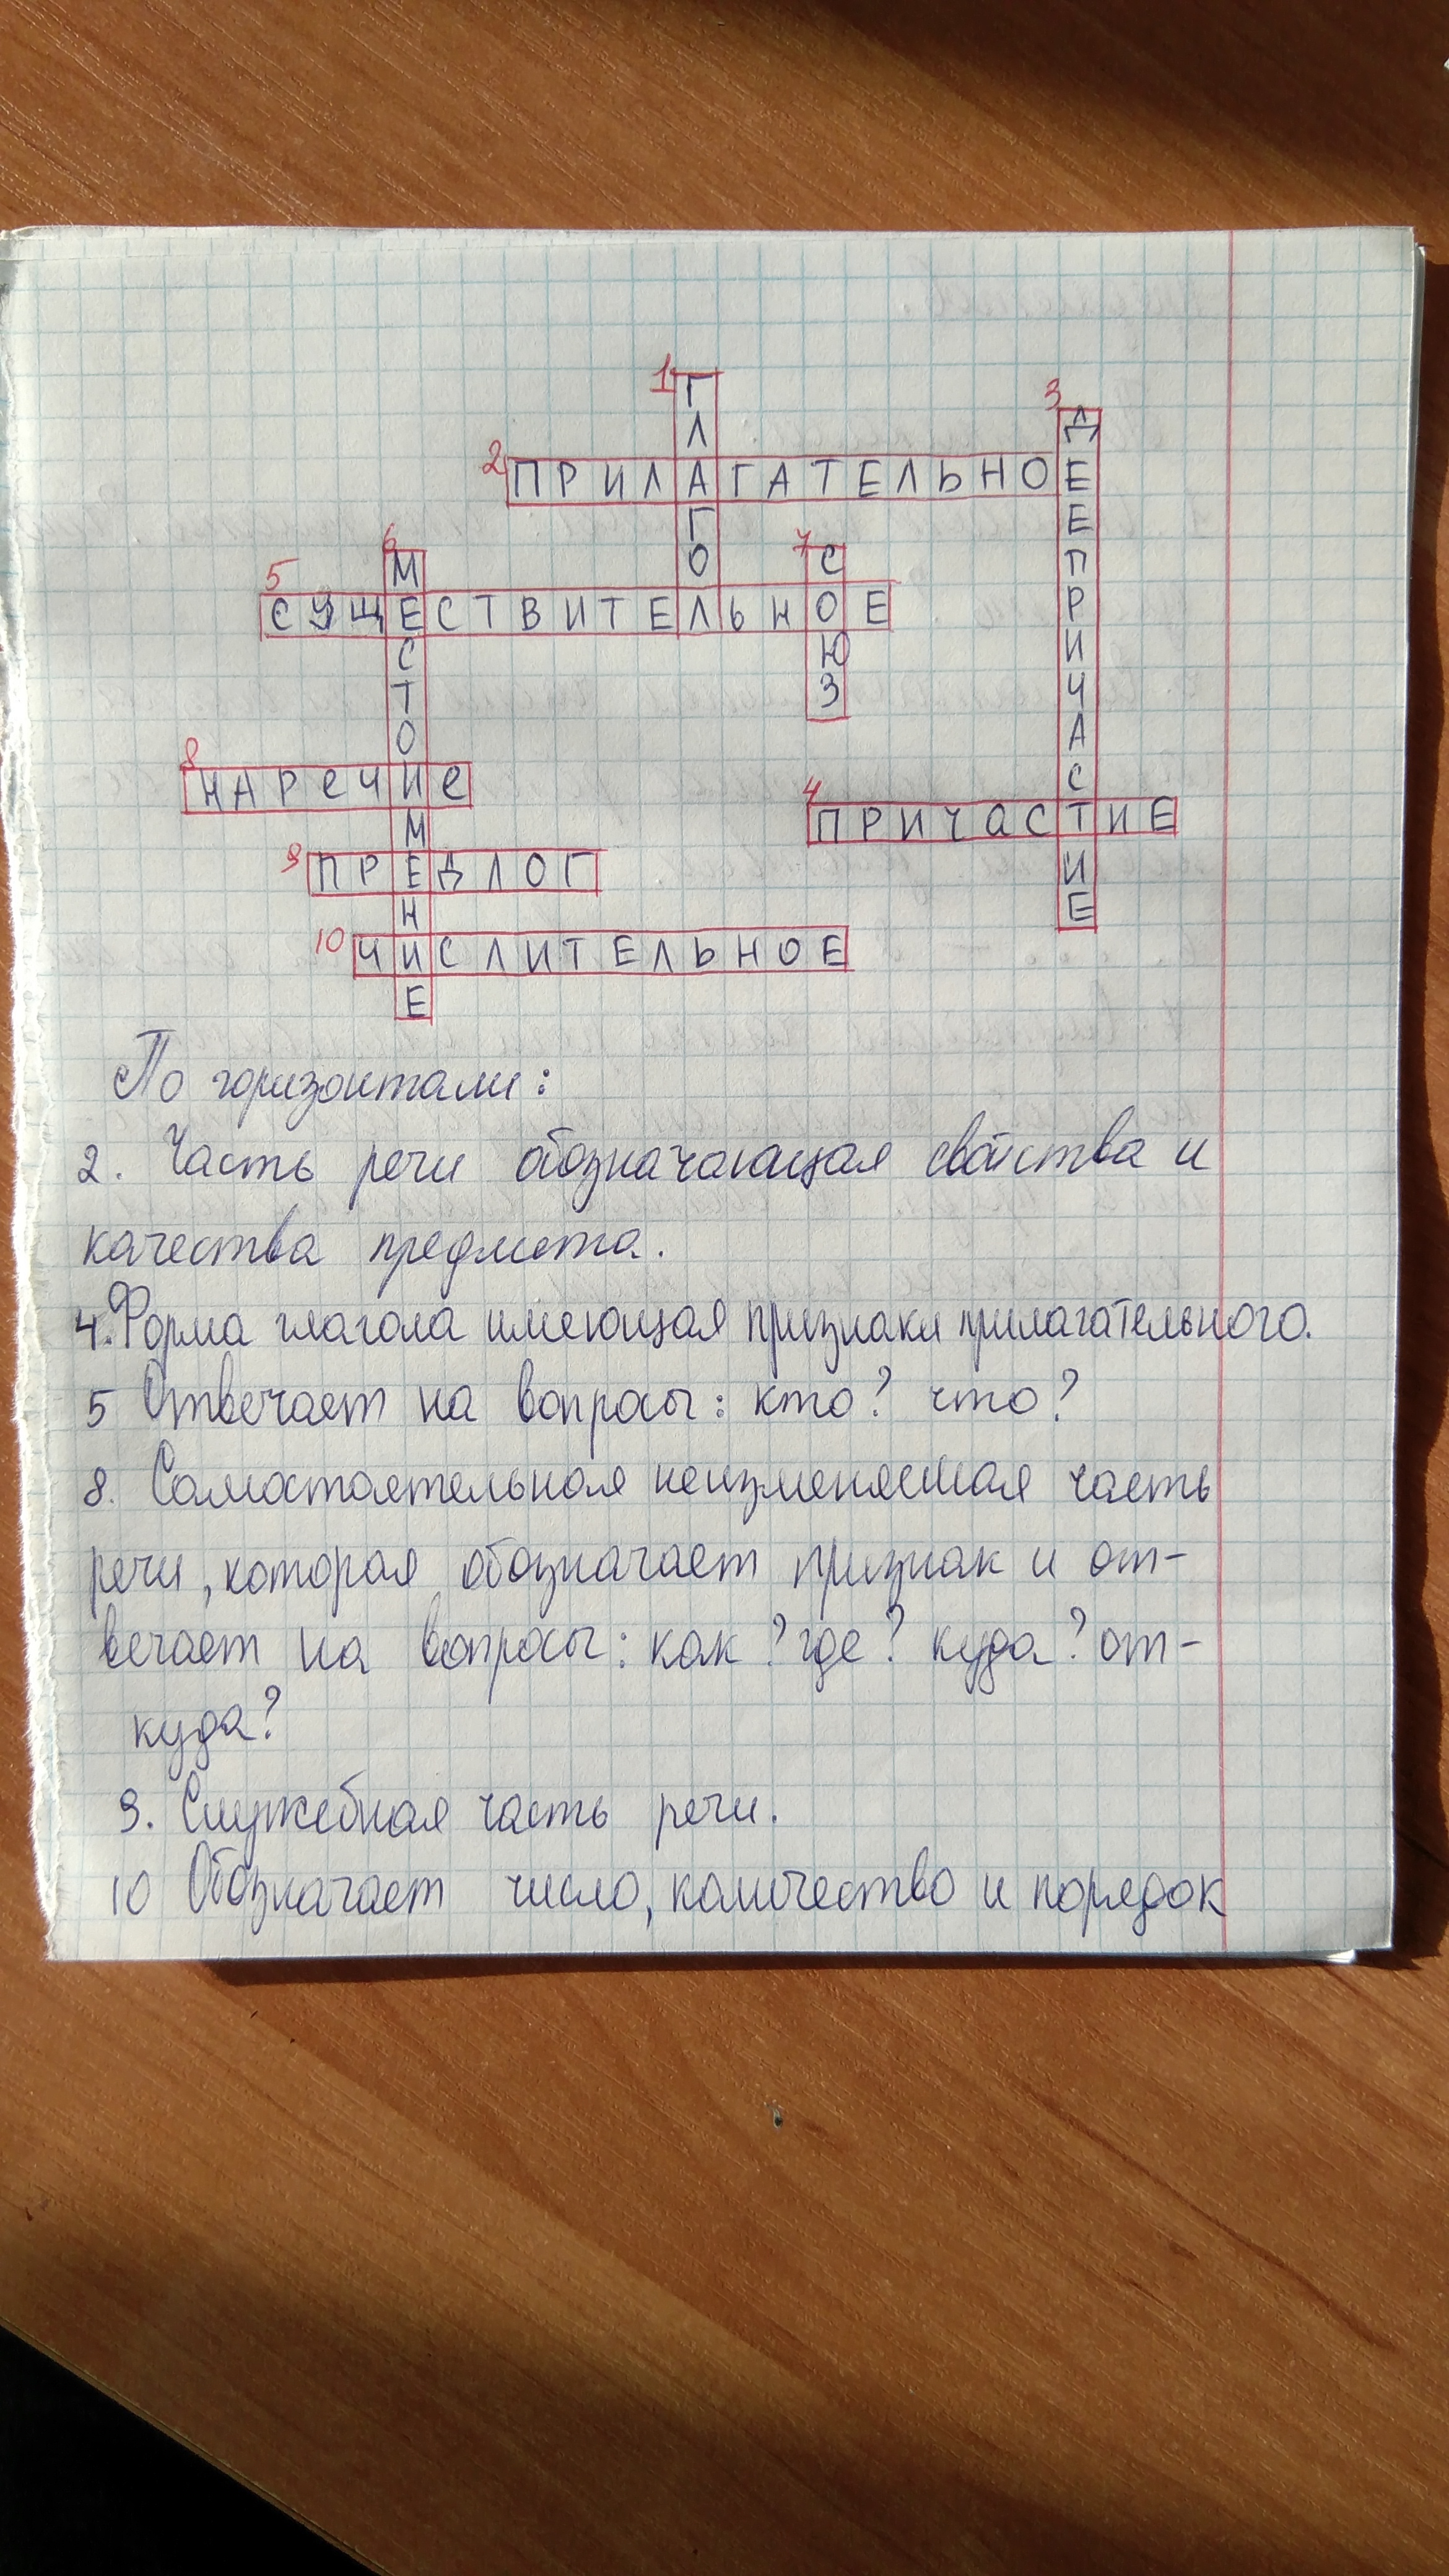 1 ГЛАГОЛ
3 ДЕЕПРИЧАСТИЕ
2 ПРИЛАГАТЕЛЬНОЕ
6 МЕСТОИМЕНИЕ
7 СОЮЗ
5 СУЩЕСТВИТЕЛЬНОЕ
8 НАРЕЧИЕ
4 ПРИЧАСТИЕ
9 ПРЕДЛОГ
10 ЧИСЛИТЕЛЬНОЕ
По горизонтали:
2. Часть речи обозначающая свойства и
качества предмета.
4. Форма глагола имеющая признаки прилагательного.
5 Отвечает на вопросы: кто? что?
8. Самостоятельная неизменяемая часть
речи, которая обозначает признак и от-
вечает на вопросы: как? где? куда? от-
куда?
9. Служебная часть речи.
10 Обозначает число, количество и порядок